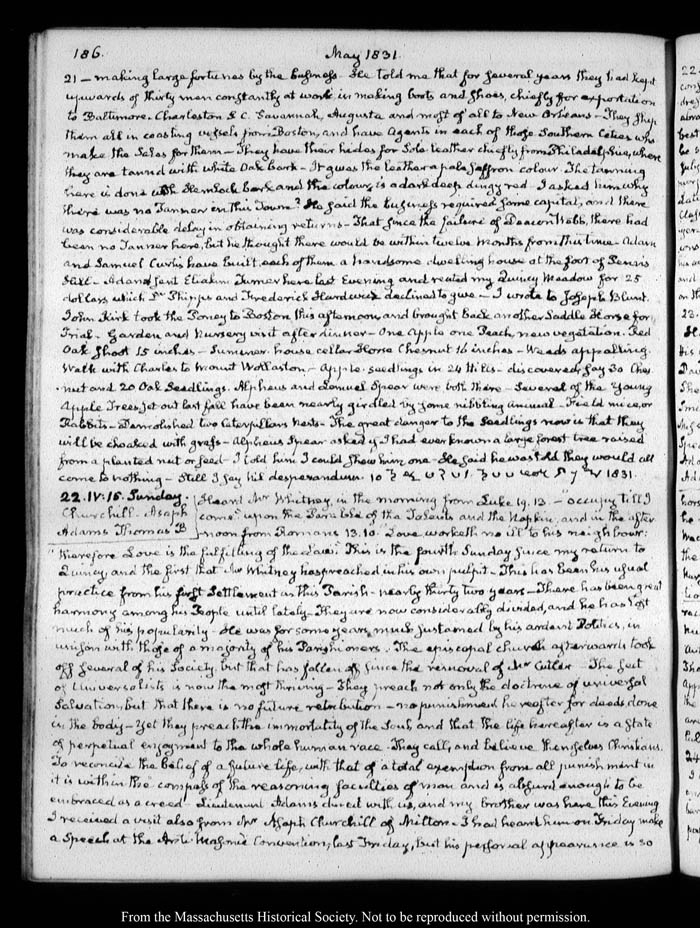 186. May 1831.
21 — making large fortunes by the business. He told me that for several years they had kept
upwards of thirty men constantly at work in making boots and shoes, chiefly for exportation
to Baltimore. Charleston S.C. Savannah, Augusta and most of all to New Orleans — They ship
them all in coasting vessels from Boston, and have Agents in each of those Southern Cities who
make the Sales for them — They have their hides for Sole leather chiefly from Philadelphia, where
they are tanned with white Oak bark — It gives the leather a pale saffron colour. The tanning
here is done with Hemlock bark and the colour is a dark deep dingy red — I asked him why
there was no Tanner in this Town? He said the business required some capital, and there
was considerable delay in obtaining returns — That since the failure of Deacon Webb, there had
been no Tanner here, but he thought there would be within twelve Months from this time — Adam
and Samuel Curtis have built, each of them a handsome dwelling house at the foot of Penn's
Hill — Adams sent Eliakim Turner here last Evening and rented my Quincy Meadow for 25
dollars which Dr Phipps and Frederick Hardwick declined to give — I wrote to Joseph Blunt.
John Kirk took the Poney to Boston this afternoon, and brought back another Saddle Horse for
Trial. Garden and Nursery visit after dinner — One Apple one Peach, new vegetation. Red
Oak shoot 15 inches — Summer-house cellar Horse Chesnut 16 inches — Weeds appalling.
Walk with Charles to Mount Wollaston — Apple-seedlings in 24 Hills — discovered, say 30 Ches-
-nut and 20 Oak Seedlings. Alpheus and Lemuel Spear were both there — Several of the young
Apple Trees set out last fall have been nearly girdled by some nibbling animal — Field mice, or
Rabbits — Demolished two Caterpillars nests — The great danger to the Seedlings now is that they
will be choaked with grass — Alpheus Spear asked if I had ever known a large forest tree raised
from a planted nut or seed — I told him I could show him one — He said he was told they would all
come to nothing — Still I say Nil desperandum. 1831.
22. IV:15. Sunday. Heard Mr Whitney, in the morning from Luke 19. 13 — "occupy till I
Churchill. Asaph come" upon the Parable of the Talents and the Napkin, and in the after
Adams Thomas B noon from Romans 13. 10. "Love worketh no ill to his neighbour:
"therefore Love is the fulfilling of the Law." This is the fourth Sunday since my return to
Quincy, and the first that Mr Whitney has preached in his own pulpit — This has been his usual
practice from his first Settlement in this Parish — nearly thirty two years — There has been great
harmony among his People until lately — They are now considerably divided, and he has lost
much of his popularity — He was for some years much sustained by his ardent Politics, in
unison with those of a majority of his Parishioners. The episcopal church afterwards took
off several of his Society, but that has fallen off since the removal of Mr Cutler — The Sect
of Universalists is now the most thriving — They preach not only the doctrine of universal
Salvation, but that there is no future retribution — no punishment hereafter for deeds done
in the body — Yet they preach the immortality of the Soul, and that the life hereafter is a State
of perpetual enjoyment to the whole human race. They call, and believe themselves Christians.
To reconcile the belief of a future life, with that of a total exemption from all punishment in
it is within the compass of the reasoning faculties of man and is absurd enough to be
embraced as a creed — Lieutenant Adams dined with us, and my brother was here this Evening
I received a visit also from Mr Asaph Churchill of Milton — I had heard him on Friday make
a Speech at the Anti-Masonic Convention, last Friday, but his personal appearance is so
From the Massachusetts Historical Society. Not to be reproduced without permission.